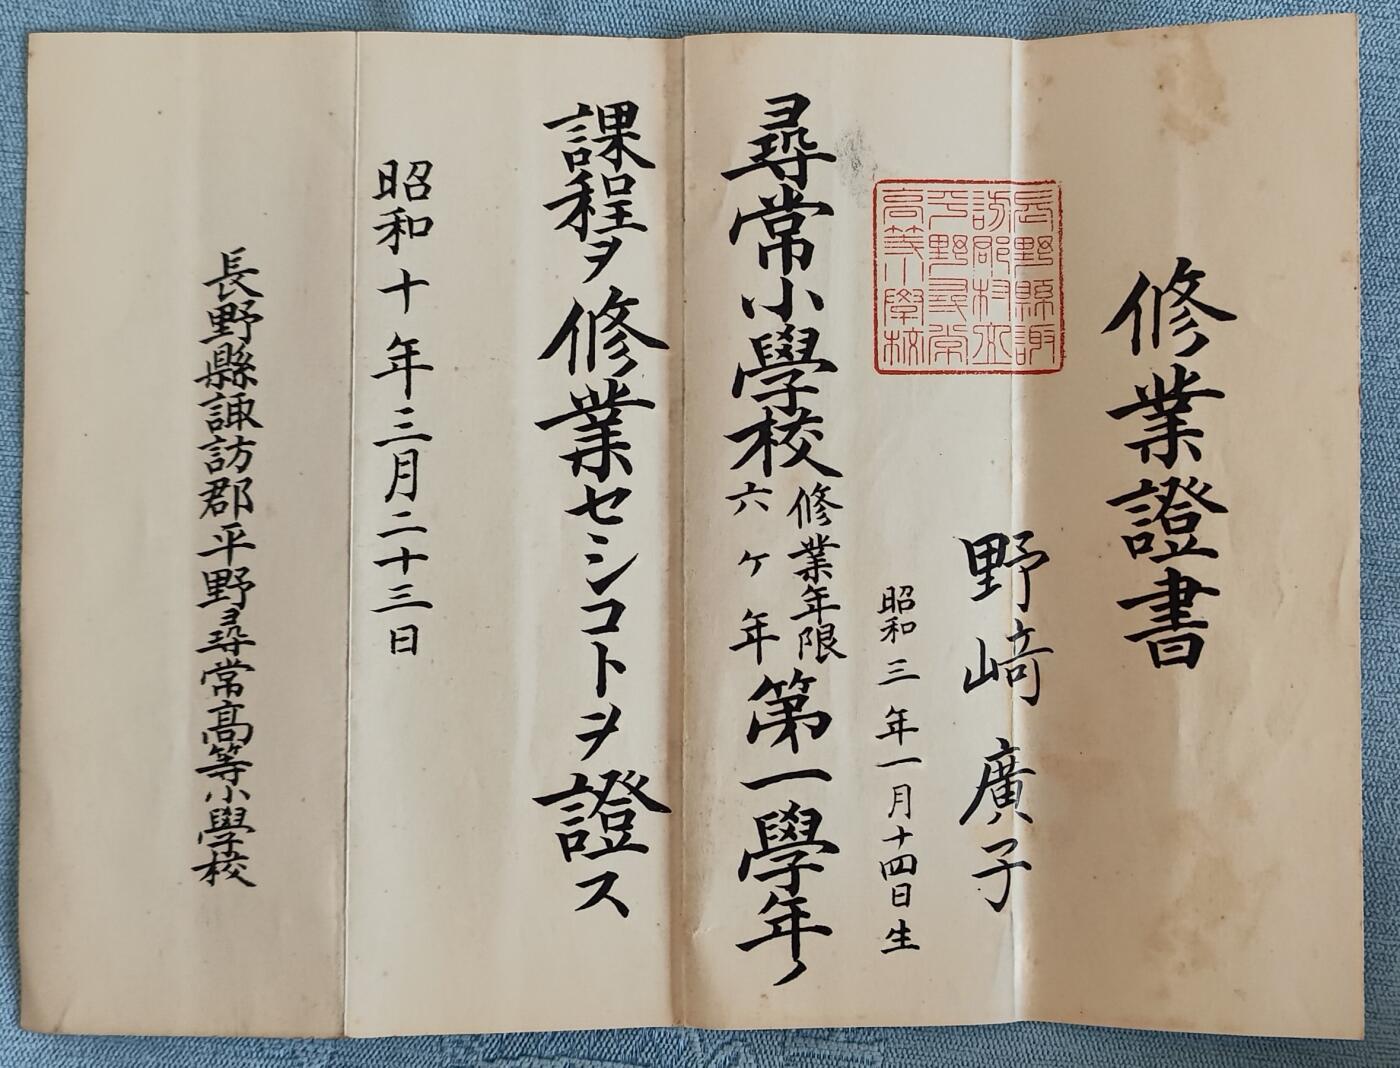 修業證書
野﨑廣子
昭和三年一月十四日生
長野縣諏
訪郡村立
平野尋常
高等小學校
尋常小學校修業年限六ヶ年第一學年ノ
課程ヲ修業セシコトヲ證ス
昭和十年三月二十三日
長野縣諏訪郡平野尋常高等小學校